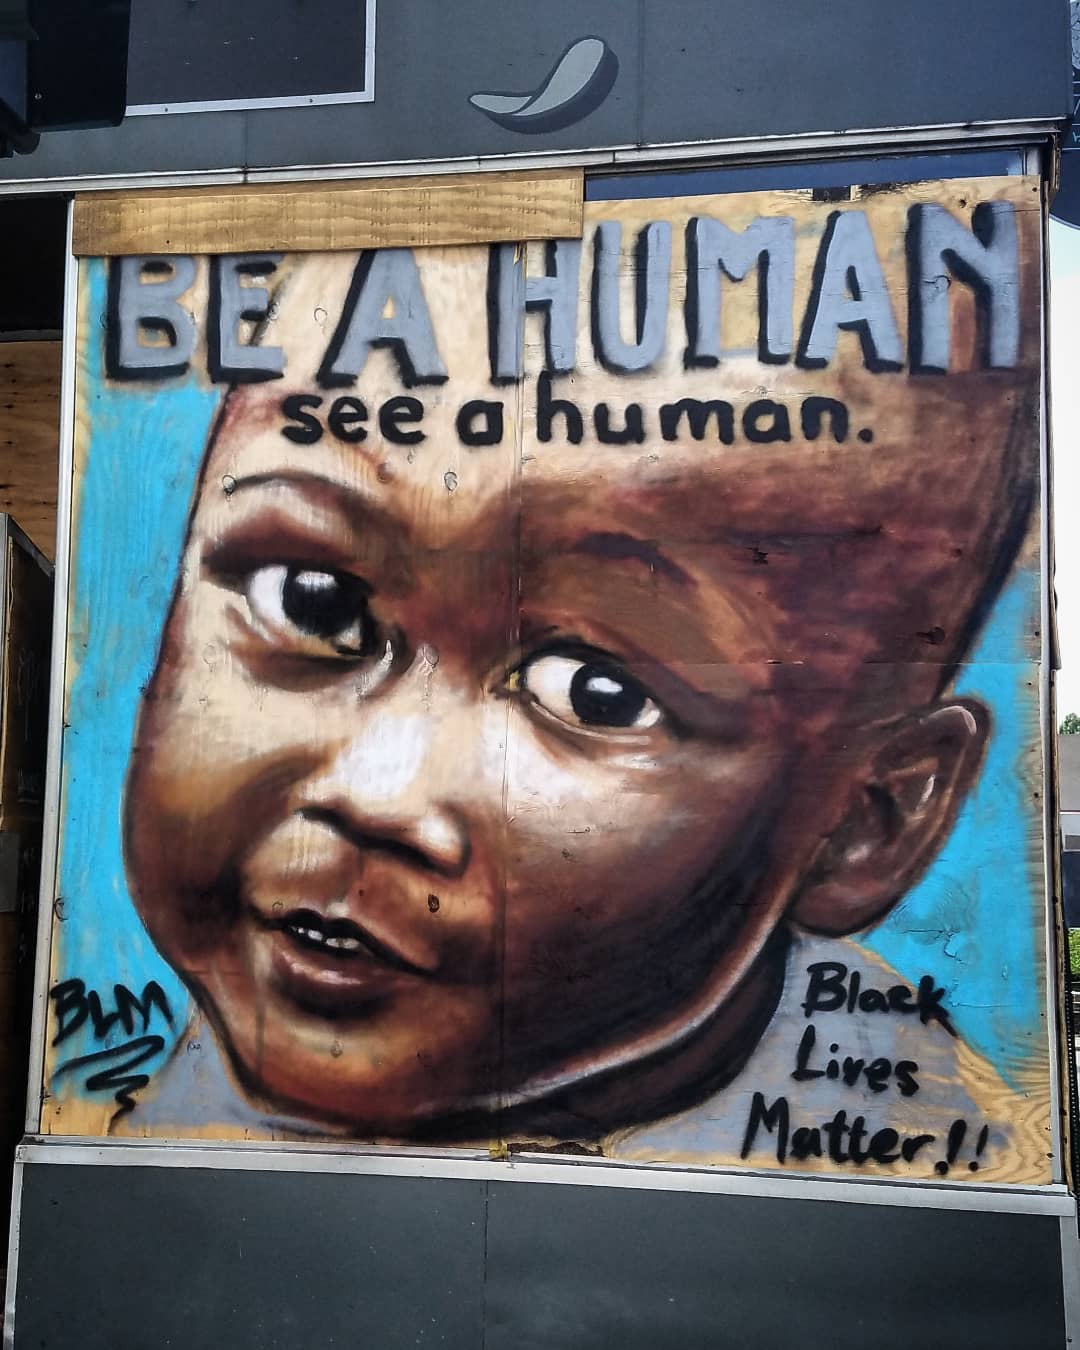 BE A HUMAN
see a human.
BLM
Black
Lives
Matter!!